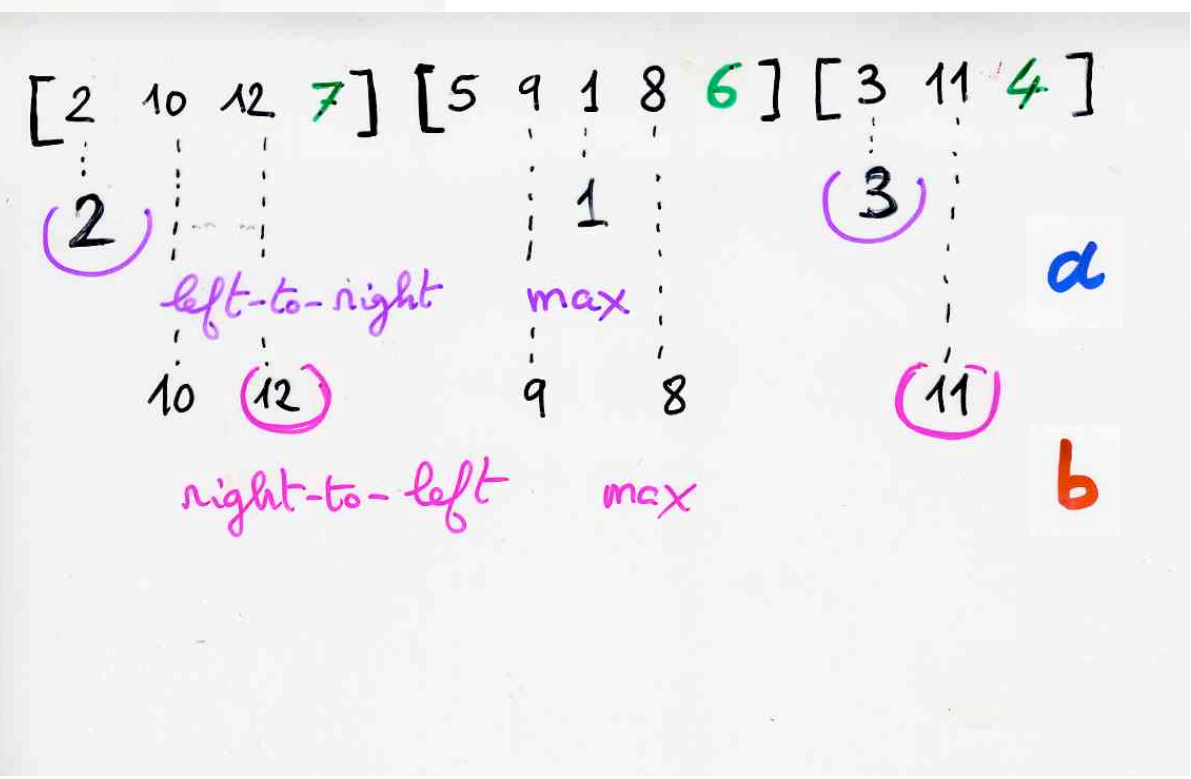 [ 2 10 12 7 ] [ 5 9 1 8 6 ] [ 3 11 4 ]
2 1 3
a
left-to-right max
10 12 9 8 11
b
right-to-left max